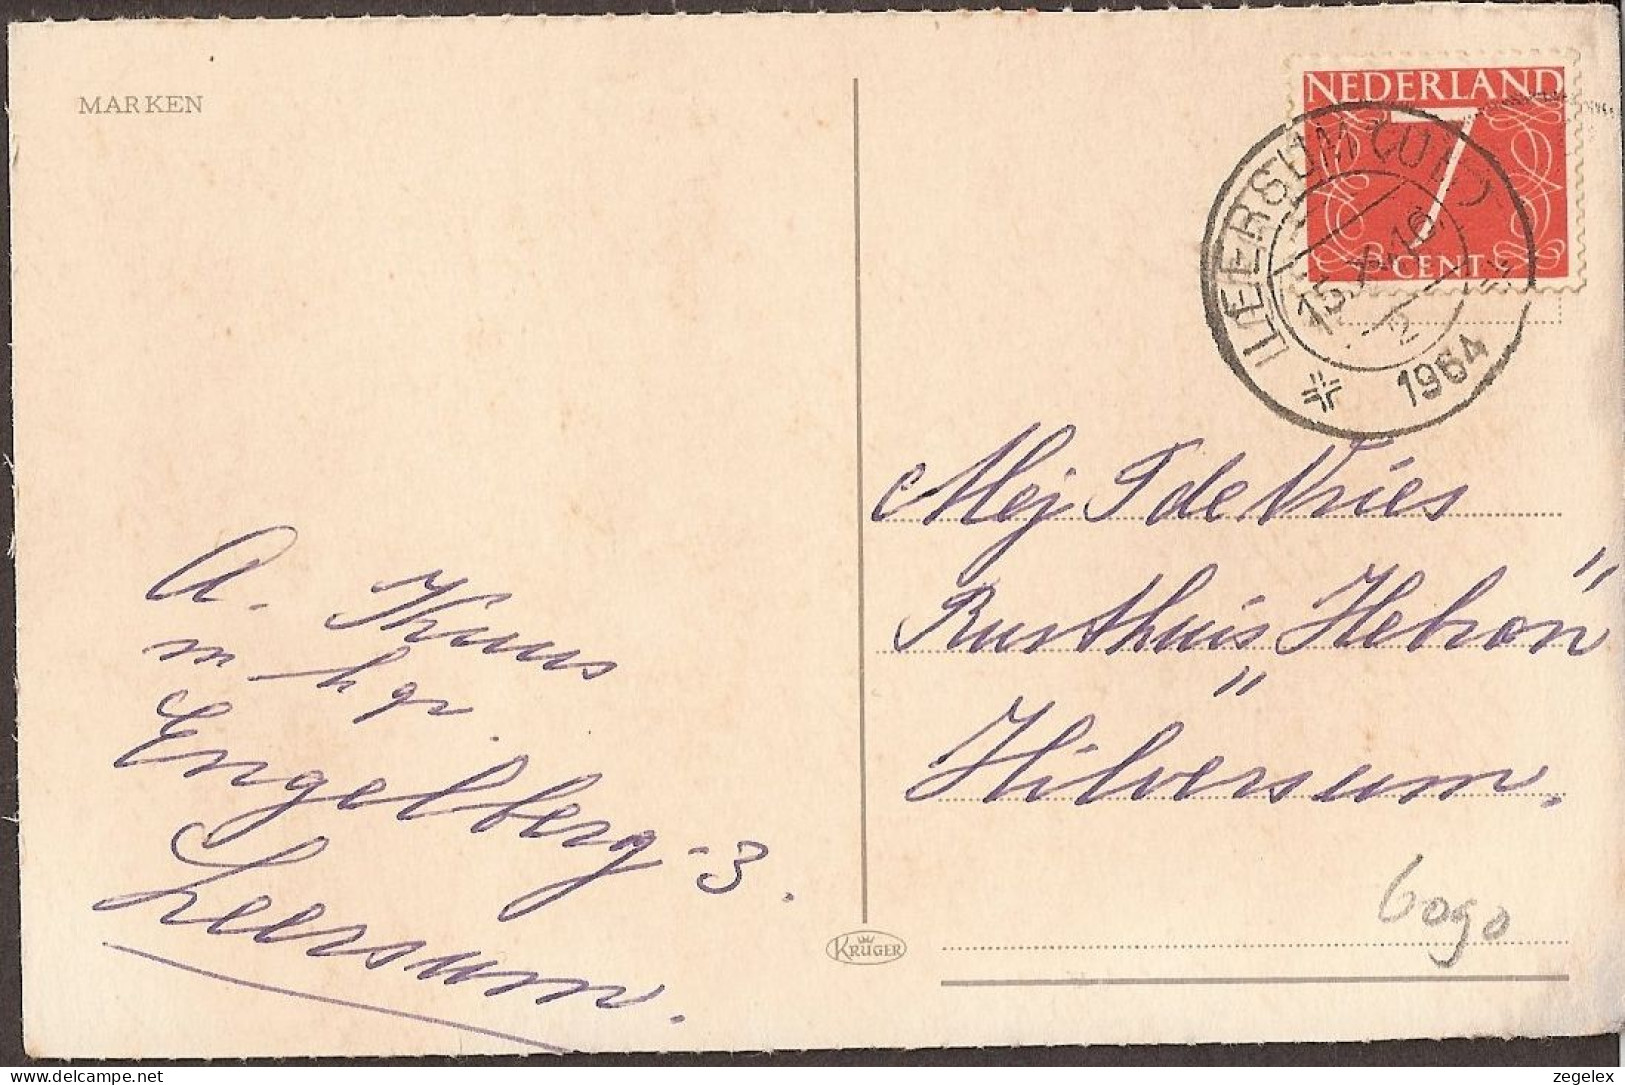 MARKEN
NEDERLAND
7
CENT
LEERSUM (UT)
15.X.16
1964
Mej T de Vries
Rusthuis "Hebron"
Hilversum.
A.
m h gr.
Engelberg-3.
Leersum.
KRÜGER
6090
Delcampe.net
zegelex